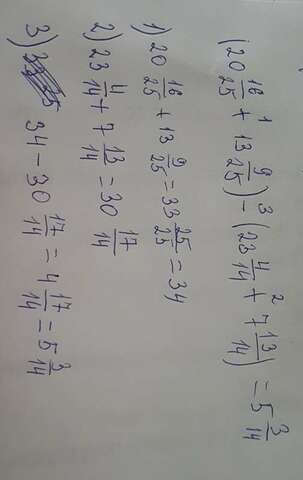 (20 16/25 + 13 9/25) - (23 4/14 + 7 13/14) = 5 3/14
1 3 2
1) 20 16/25 + 13 9/25 = 33 25/25 = 34
2) 23 4/14 + 7 13/14 = 30 17/14
3) 34 - 30 17/14 = 4 17/14 = 5 3/14